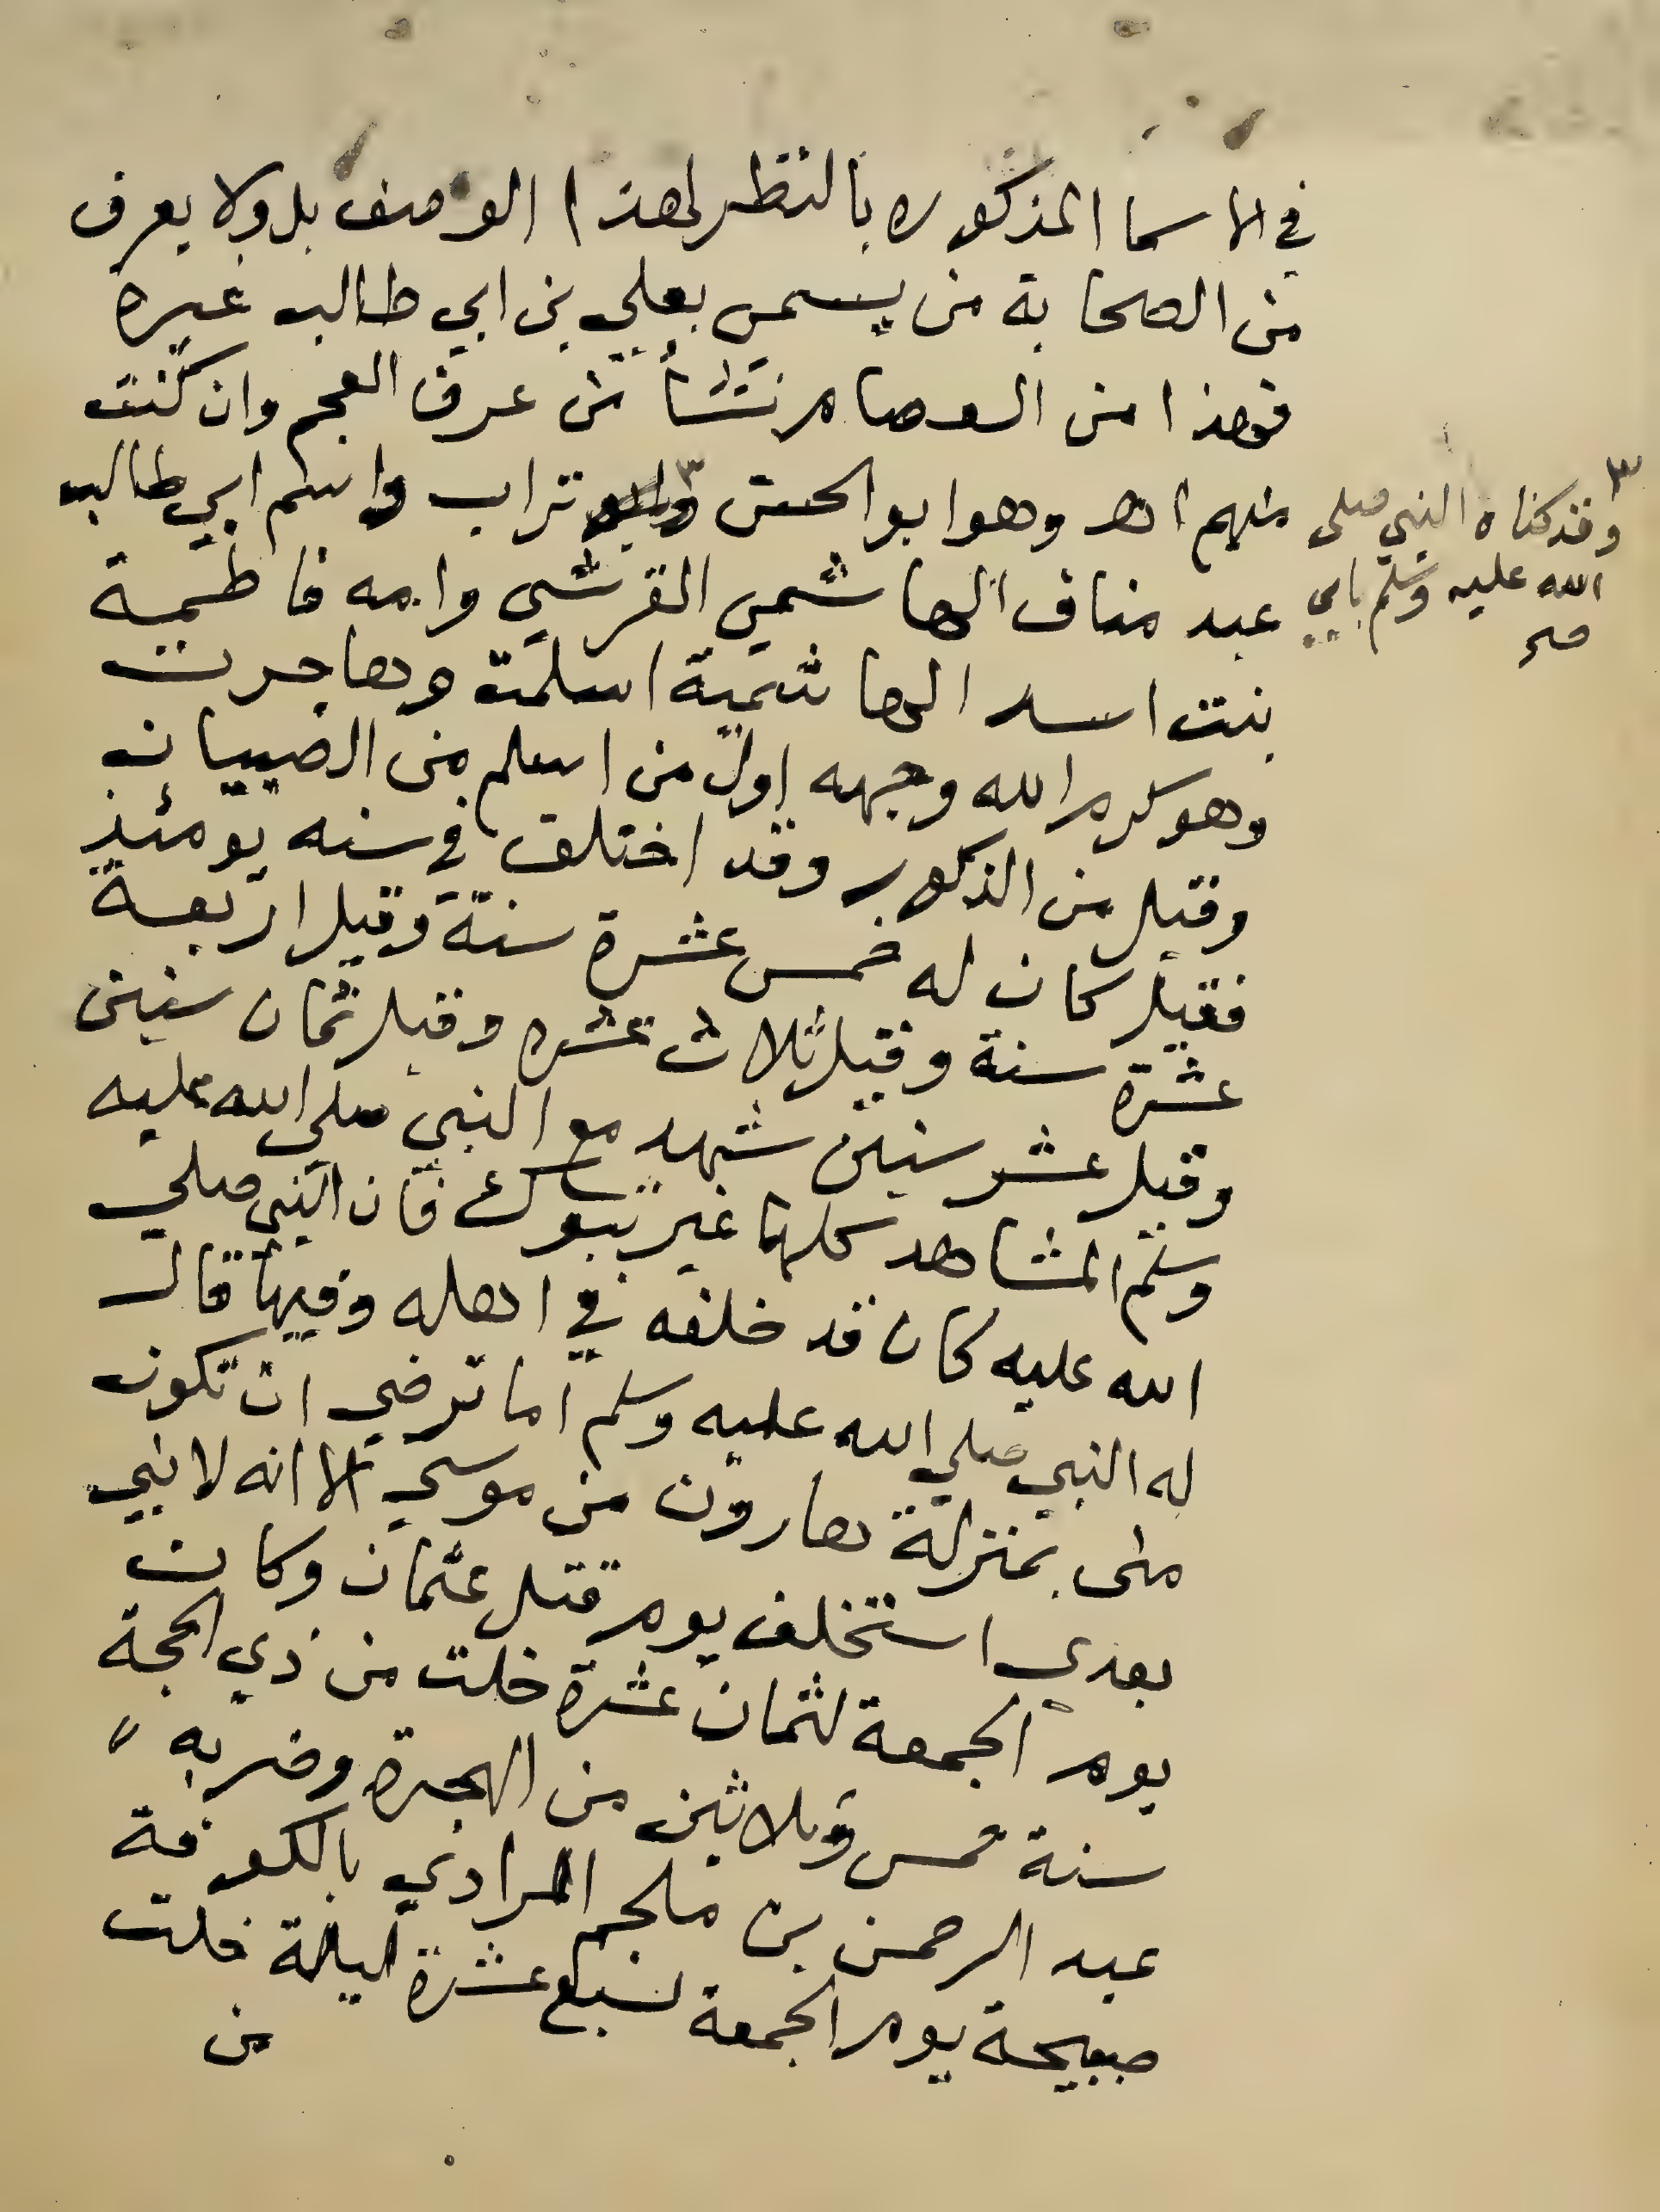 في الاسما المذكوره بالنظر لهذا الوصف بل ولا يعرف
من الصحابة من يسمى بعلي بن ابي طالب غيره
فهذا من العصام نشأ من عرف العجم وان كنت
منهم اهـ وهو ابو الحسن وابو تراب واسم ابي طالب
عبد مناف الهاشمي القرشي وامه فاطمة
بنت اسد الهاشمية اسلمت وهاجرت
وهو كرم الله وجهه اول من اسلم من الصبيان
وقيل من الذكور وقد اختلف في سنه يومئذ
فقيل كان له خمس عشرة سنة وقيل اربعة
عشرة سنة وقيل ثلاث عشره وقيل ثمان سنين
وقيل عشر سنين شهد مع النبي صلى الله عليه
وسلم المشاهد كلها غير تبوك فان النبي صلي
الله عليه كان قد خلفه في اهله وفيها قال
له النبي صلي الله عليه وسلم اما ترضي ان تكون
منى بمنزلة هارون من موسي الا انه لا نبي
بعدي استخلف يوم قتل عثمان وكان
يوم الجمعة لثمان عشرة خلت من ذي الحجة
سنة خمس وثلاثين من الهجرة وضربه
عبد الرحمن بن ملجم المرادي بالكوفة
صبيحة يوم الجمعة لسبع عشرة ليلة خلت
من
وقد كناه النبي صلى
الله عليه وسلم بابي
صح